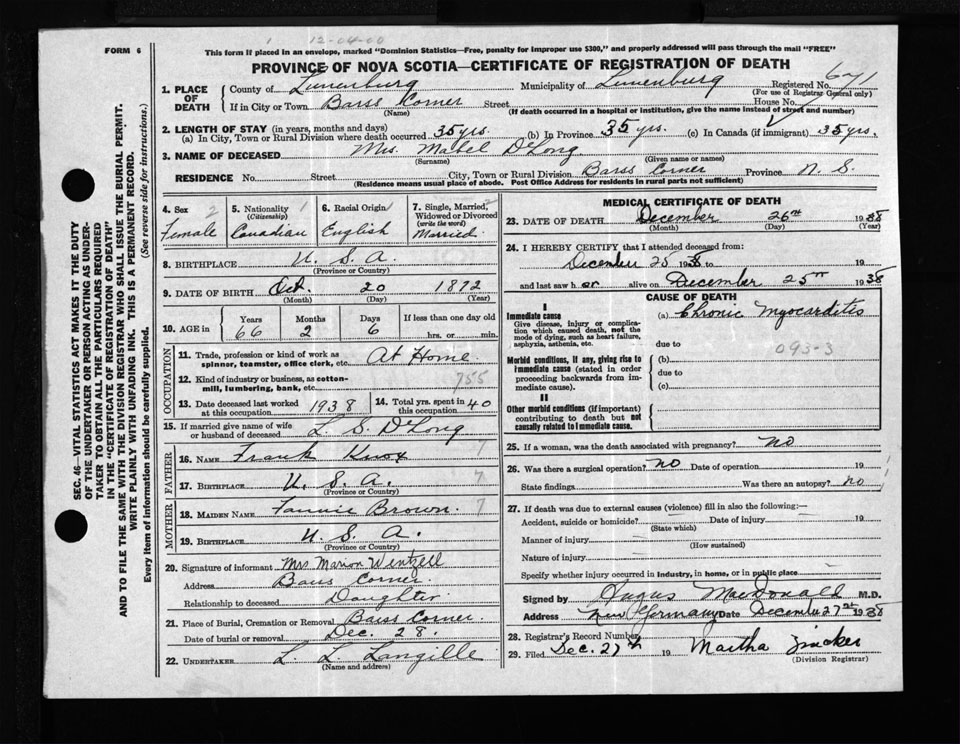 1 12-04-00
FORM 6
This form if placed in an envelope, marked "Dominion Statistics—Free, penalty for improper use $300," and properly addressed will pass through the mail "FREE"
PROVINCE OF NOVA SCOTIA—CERTIFICATE OF REGISTRATION OF DEATH
SEC. 46—VITAL STATISTICS ACT MAKES IT THE DUTY
OF THE UNDERTAKER OR PERSON ACTING AS UNDER-
TAKER TO OBTAIN ALL THE PARTICULARS REQUIRED
IN THE "CERTIFICATE OF REGISTRATION OF DEATH"
AND TO FILE THE SAME WITH THE DIVISION REGISTRAR WHO SHALL ISSUE THE BURIAL PERMIT.
WRITE PLAINLY WITH UNFADING INK. THIS IS A PERMANENT RECORD.
Every item of information should be carefully supplied. (See reverse side for instructions.)
1. PLACE OF DEATH
County of Lunenburg Municipality of Lunenburg Registered No. 671
(For use of Registrar General only)
If in City or Town Barss Corner Street House No.
(Name) (If death occurred in a hospital or institution, give the name instead of street and number)
2. LENGTH OF STAY (in years, months and days)
(a) In City, Town or Rural Division where death occurred 35 yrs. (b) In Province 35 yrs. (c) In Canada (if immigrant) 35 yrs.
3. NAME OF DECEASED Mrs. Mabel DeLong
(Surname) (Given name or names)
RESIDENCE No. Street City, Town or Rural Division Barss Corner Province N. S.
(Residence means usual place of abode. Post Office Address for residents in rural parts not sufficient)
4. Sex 2
Female
5. Nationality 1
(Citizenship)
Canadian
6. Racial Origin
English
7. Single, Married, Widowed or Divorced
(write the word)
Married
8. BIRTHPLACE U. S. A.
(Province or Country)
9. DATE OF BIRTH Oct. 20 1872
(Month) (Day) (Year)
10. AGE in Years Months Days If less than one day old
66 2 6 hrs. or min.
OCCUPATION
11. Trade, profession or kind of work as spinner, teamster, office clerk, etc. At Home
12. Kind of industry or business, as cotton-mill, lumbering, bank, etc. 755
13. Date deceased last worked at this occupation 1938
14. Total yrs. spent in this occupation 40
15. If married give name of wife or husband of deceased L. S. DeLong
FATHER
16. NAME Frank Knox 7
17. BIRTHPLACE U. S. A. 7
(Province or Country)
MOTHER
18. MAIDEN NAME Fannie Brown 7
19. BIRTHPLACE U. S. A.
(Province or Country)
20. Signature of informant Mrs Marion Wentzell
Address Barss Corner.
Relationship to deceased Daughter
21. Place of Burial, Cremation or Removal Barss Corner.
Date of burial or removal Dec. 28.
22. UNDERTAKER L. L. Langille
(Name and address)
MEDICAL CERTIFICATE OF DEATH
23. DATE OF DEATH December 26th 1938
(Month) (Day) (Year)
24. I HEREBY CERTIFY that I attended deceased from:
December 25 1938 to 19
and last saw her alive on December 25th 1938
CAUSE OF DEATH
I
Immediate cause
Give disease, injury or complication which caused death, not the mode of dying, such as heart failure, asphyxia, asthenia, etc.
(a) Chronic Myocarditis
due to
093-3
Morbid conditions, if any, giving rise to immediate cause (stated in order proceeding backwards from immediate cause).
(b)
due to
(c)
II
Other morbid conditions (if important) contributing to death but not causally related to immediate cause.
25. If a woman, was the death associated with pregnancy? No
26. Was there a surgical operation? No Date of operation 19
State findings Was there an autopsy? No
27. If death was due to external causes (violence) fill in also the following:—
Accident, suicide or homicide? Date of injury 19
(State which)
Manner of injury
(How sustained)
Nature of injury
Specify whether injury occurred in industry, in home, or in public place
Signed by Angus MacDonald M.D.
Address New Germany Date December 27th 1938
28. Registrar's Record Number
29. Filed Dec. 27th 19 Martha Zincker
(Division Registrar)